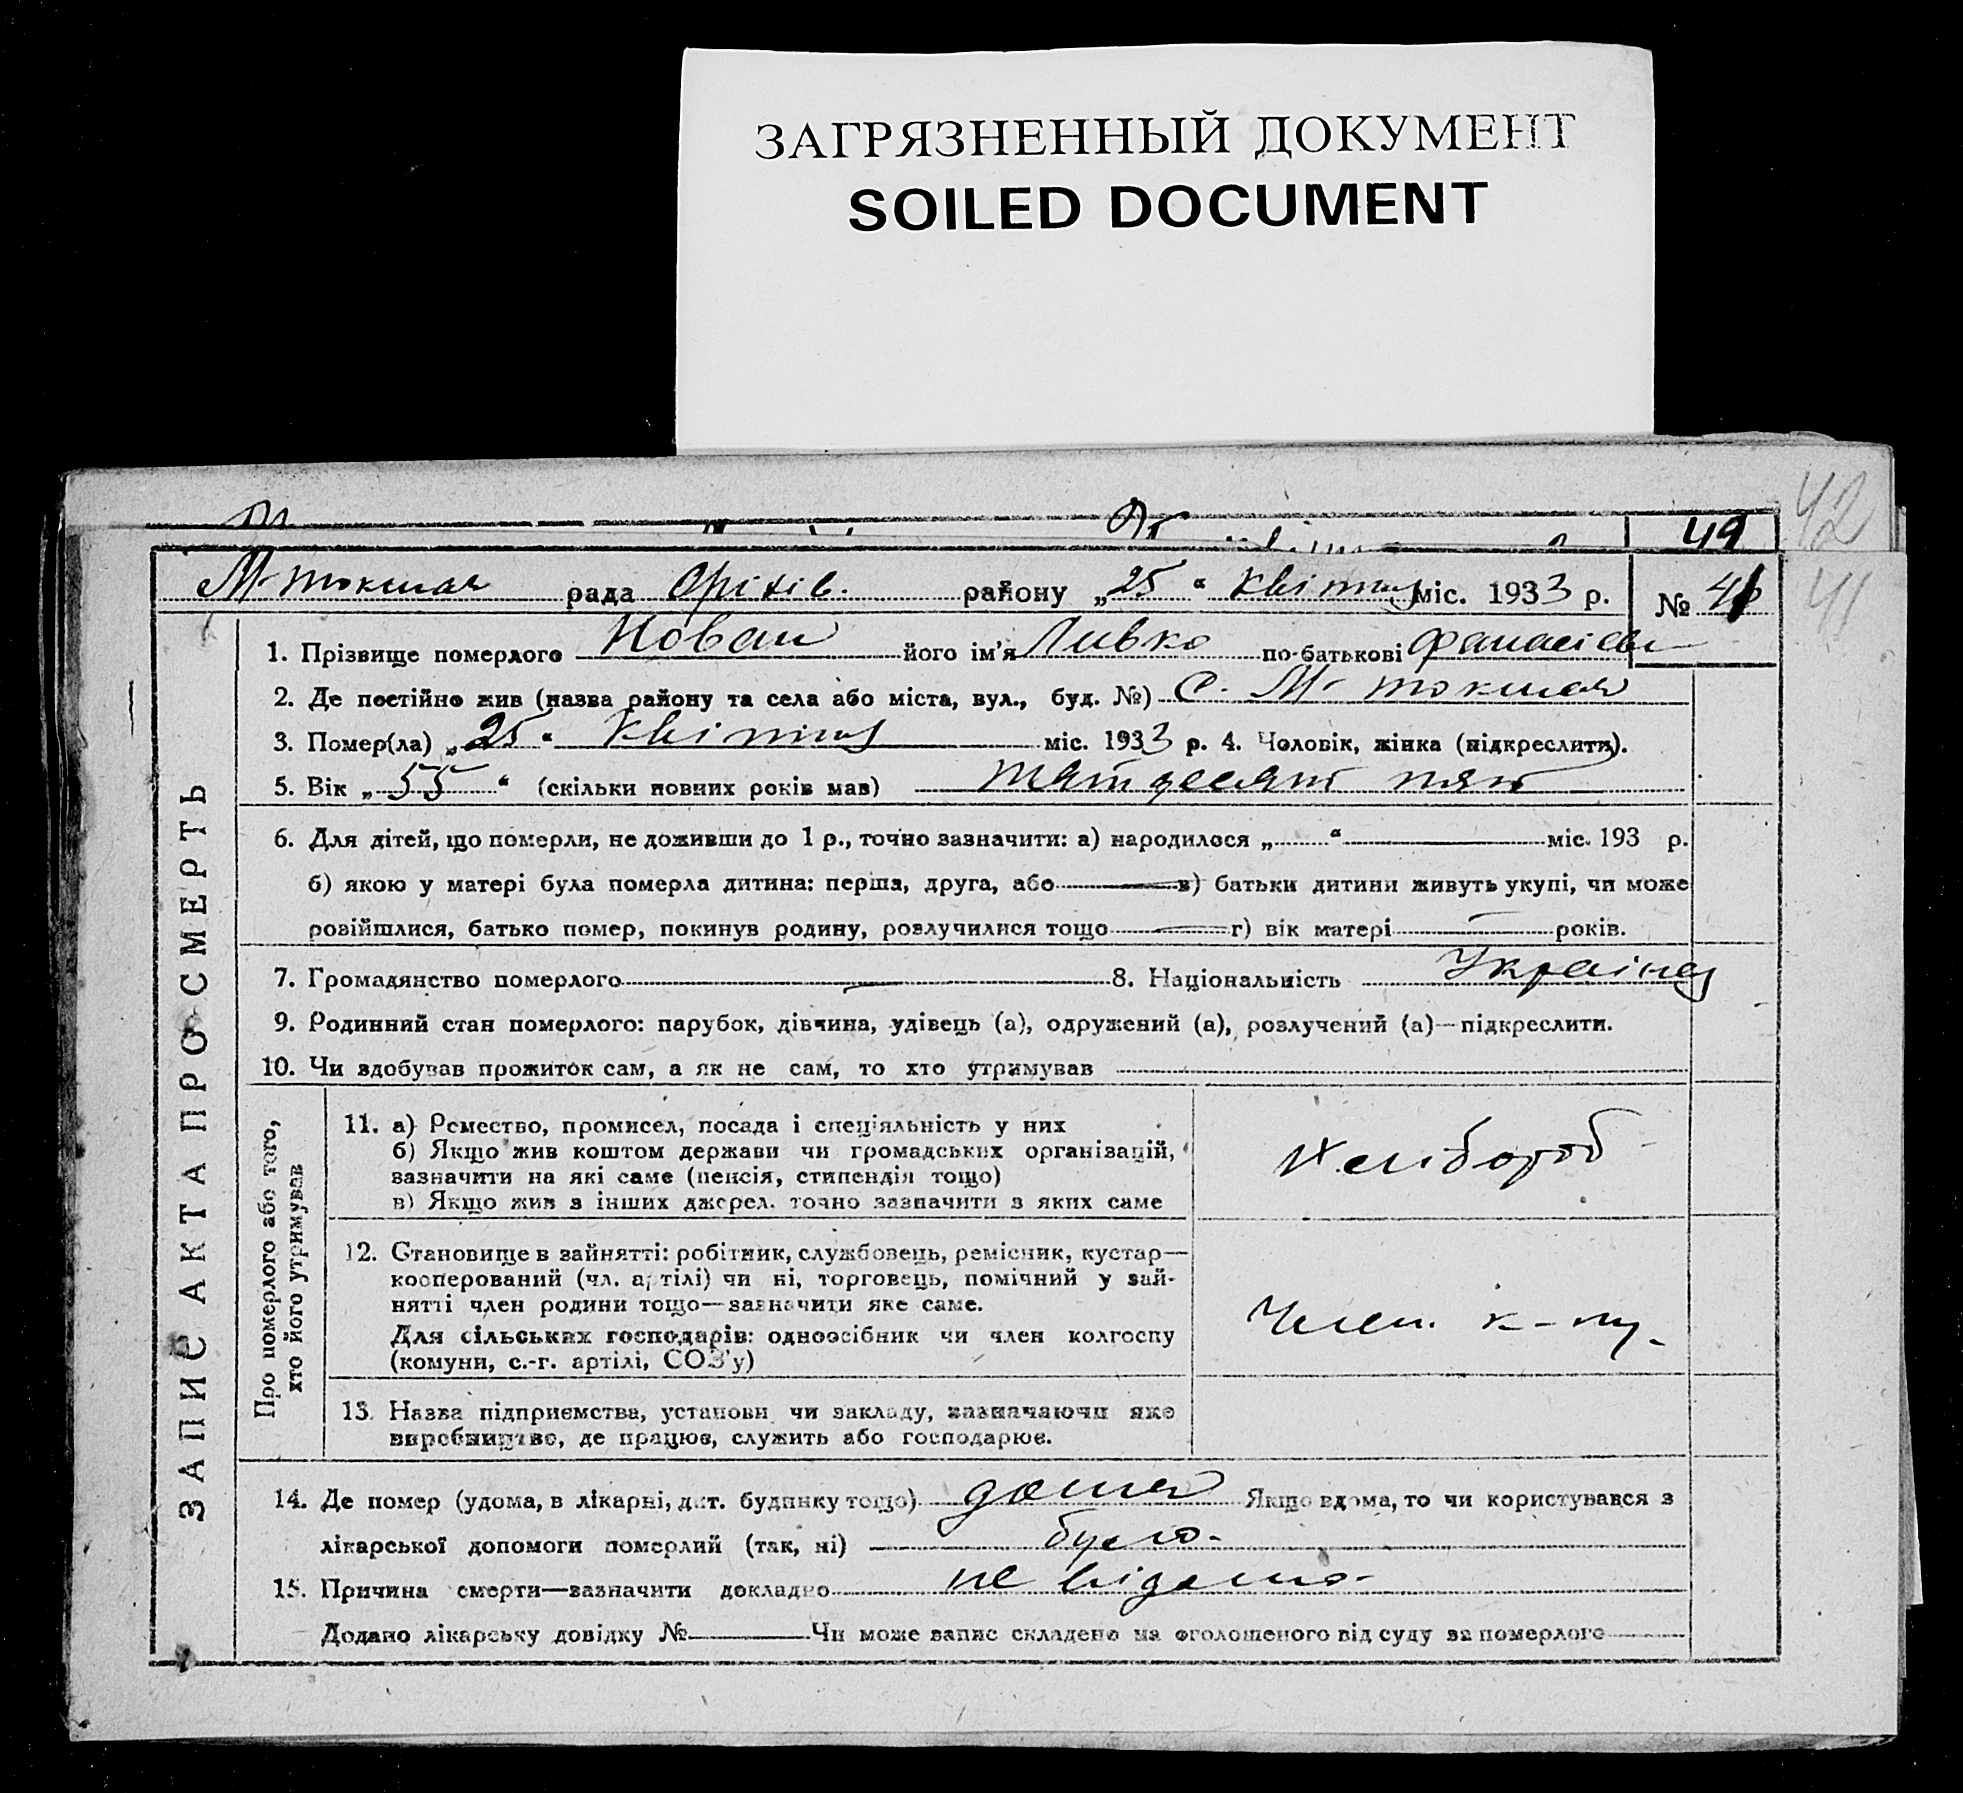 ЗАГРЯЗНЕННЫЙ ДОКУМЕНТ
SOILED DOCUMENT
42
49
М-токмач рада Оріхів. району „25“ Квітня міс. 1933 р. №
41
1. Прізвище померлого його ім'я Ливко по-батькові
2. Де постійно жив (назва району та села або міста, вул., буд. №) С. М-токмач
3. Помер(ла) „25“ Квітня міс. 1933 р. 4. Чоловік, жінка (підкреслити).
5. Вік „55“ (скільки повних років мав) пятдесят пять
6. Для дітей, що померли, не доживши до 1 р., точно зазначити: а) народилося „ “ міс. 193 р.
б) якою у матері була померла дитина: перша, друга, або в) батьки дитини живуть укупі, чи може
розійшлися, батько помер, покинув родину, розлучилися тощо г) вік матері років.
7. Громадянство померлого — 8. Національність Українец
9. Родинний стан померлого: парубок, дівчина, удівець (а), одружений (а), розлучений (а)—підкреслити.
10. Чи здобував прожиток сам, а як не сам, то хто утримував
ЗАПИС АКТА ПРО СМЕРТЬ
Про померлого або того,
хто його утримував
11. а) Ремество, промисел, посада і спеціяльність у них
б) Якщо жив коштом держави чи громадських організацій,
зазначити на які саме (пенсія, стипендія тощо)
в) Якщо жив з інших джерел. точно зазначити з яких саме
Хлібороб
12. Становище в зайнятті: робітник, службовець, ремісник, кустар—
кооперований (чл. артілі) чи ні, торговець, помічний у зай-
нятті член родини тощо—зазначити яке саме.
Для сільських господарів: одноосібник чи член колгоспу
(комуни, с.-г. артілі, СОЗ'у)
Член. к-пу
13. Назва підприємства, установи чи закладу, зазначаючи яке
виробництво, де працює, служить або господарює.
14. Де помер (удома, в лікарні, дит. будинку тощо) дома Якщо вдома, то чи користувався з
лікарської допомоги померлий (так, ні) було-
15. Причина смерти—зазначити докладно не відомо-
Додано лікарську довідку № Чи може запис складено на оголошеного від суду за померлого